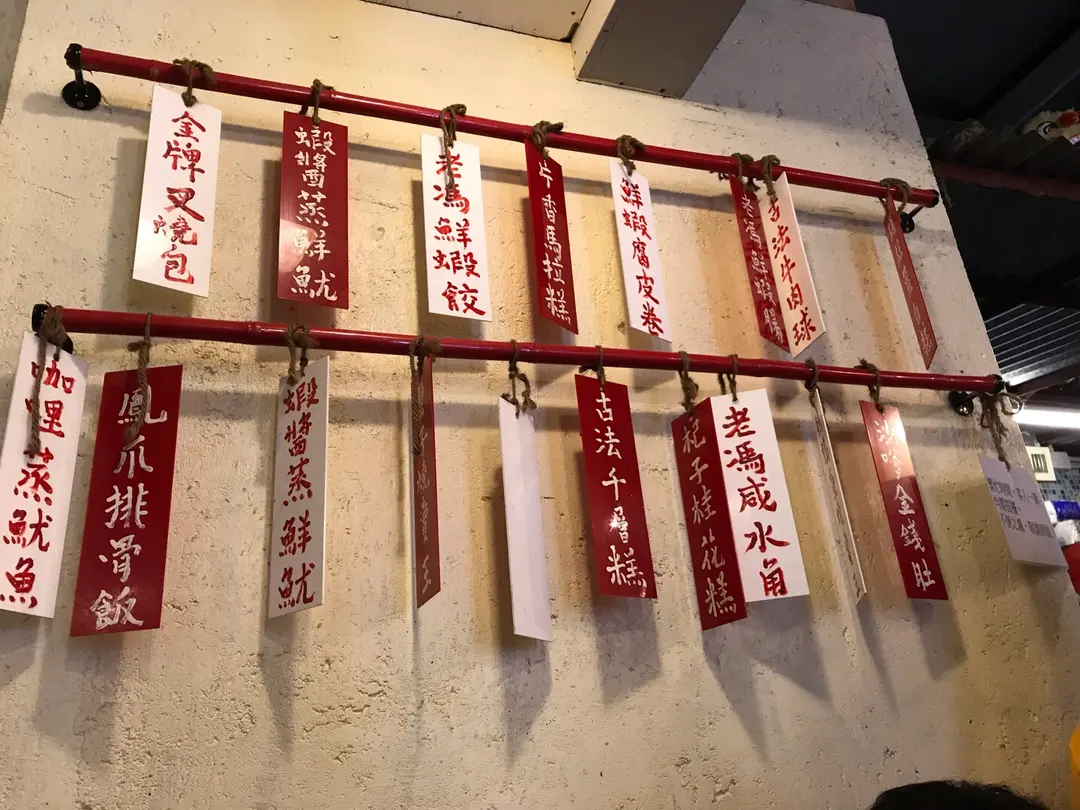 金牌叉燒包
蝦醬蒸鮮魷
老馮鮮蝦餃
片香馬拉糕
鮮蝦腐皮卷
老馮鮮蝦腸
手法牛肉球
咖哩蒸魷魚
鳳爪排骨飯
蝦醬蒸鮮魷
古法千層糕
杞子桂花糕
老馮咸水角
金錢肚